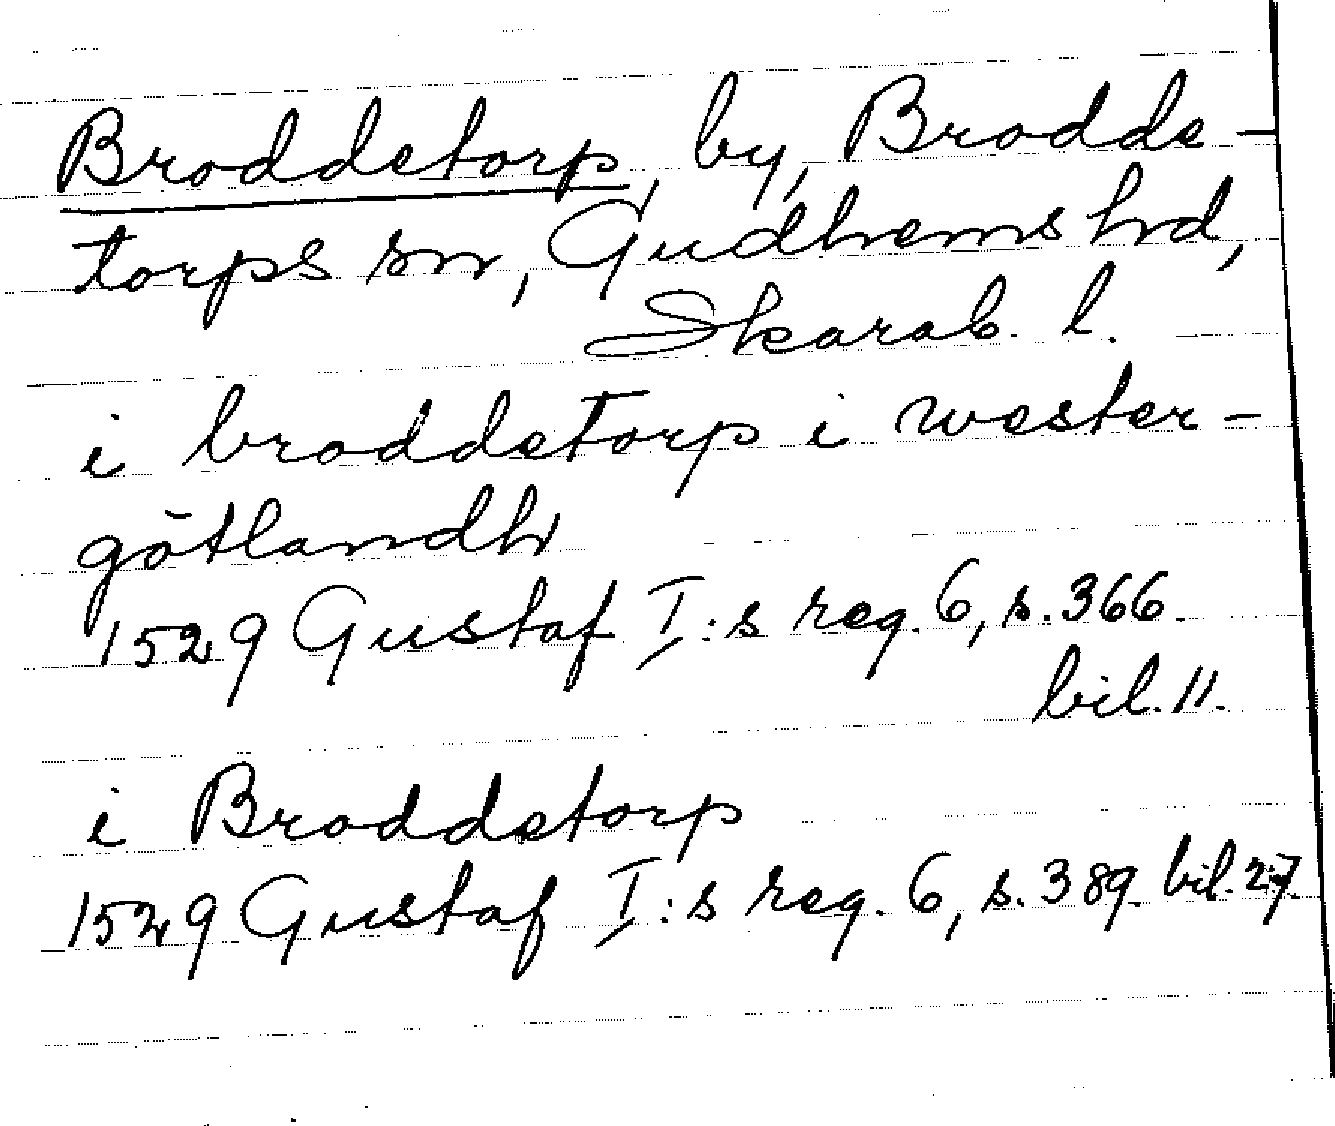 Broddetorp, by, Brodde-
torps sn, Gudhems hd,
Skarab. l.
i broddetorp i wester-
götlandh
1529 Gustaf I:s reg. 6, s. 366.
bil. 11.
i Broddetorp
1529 Gustaf I:s reg. 6, s. 389. bil. 27.